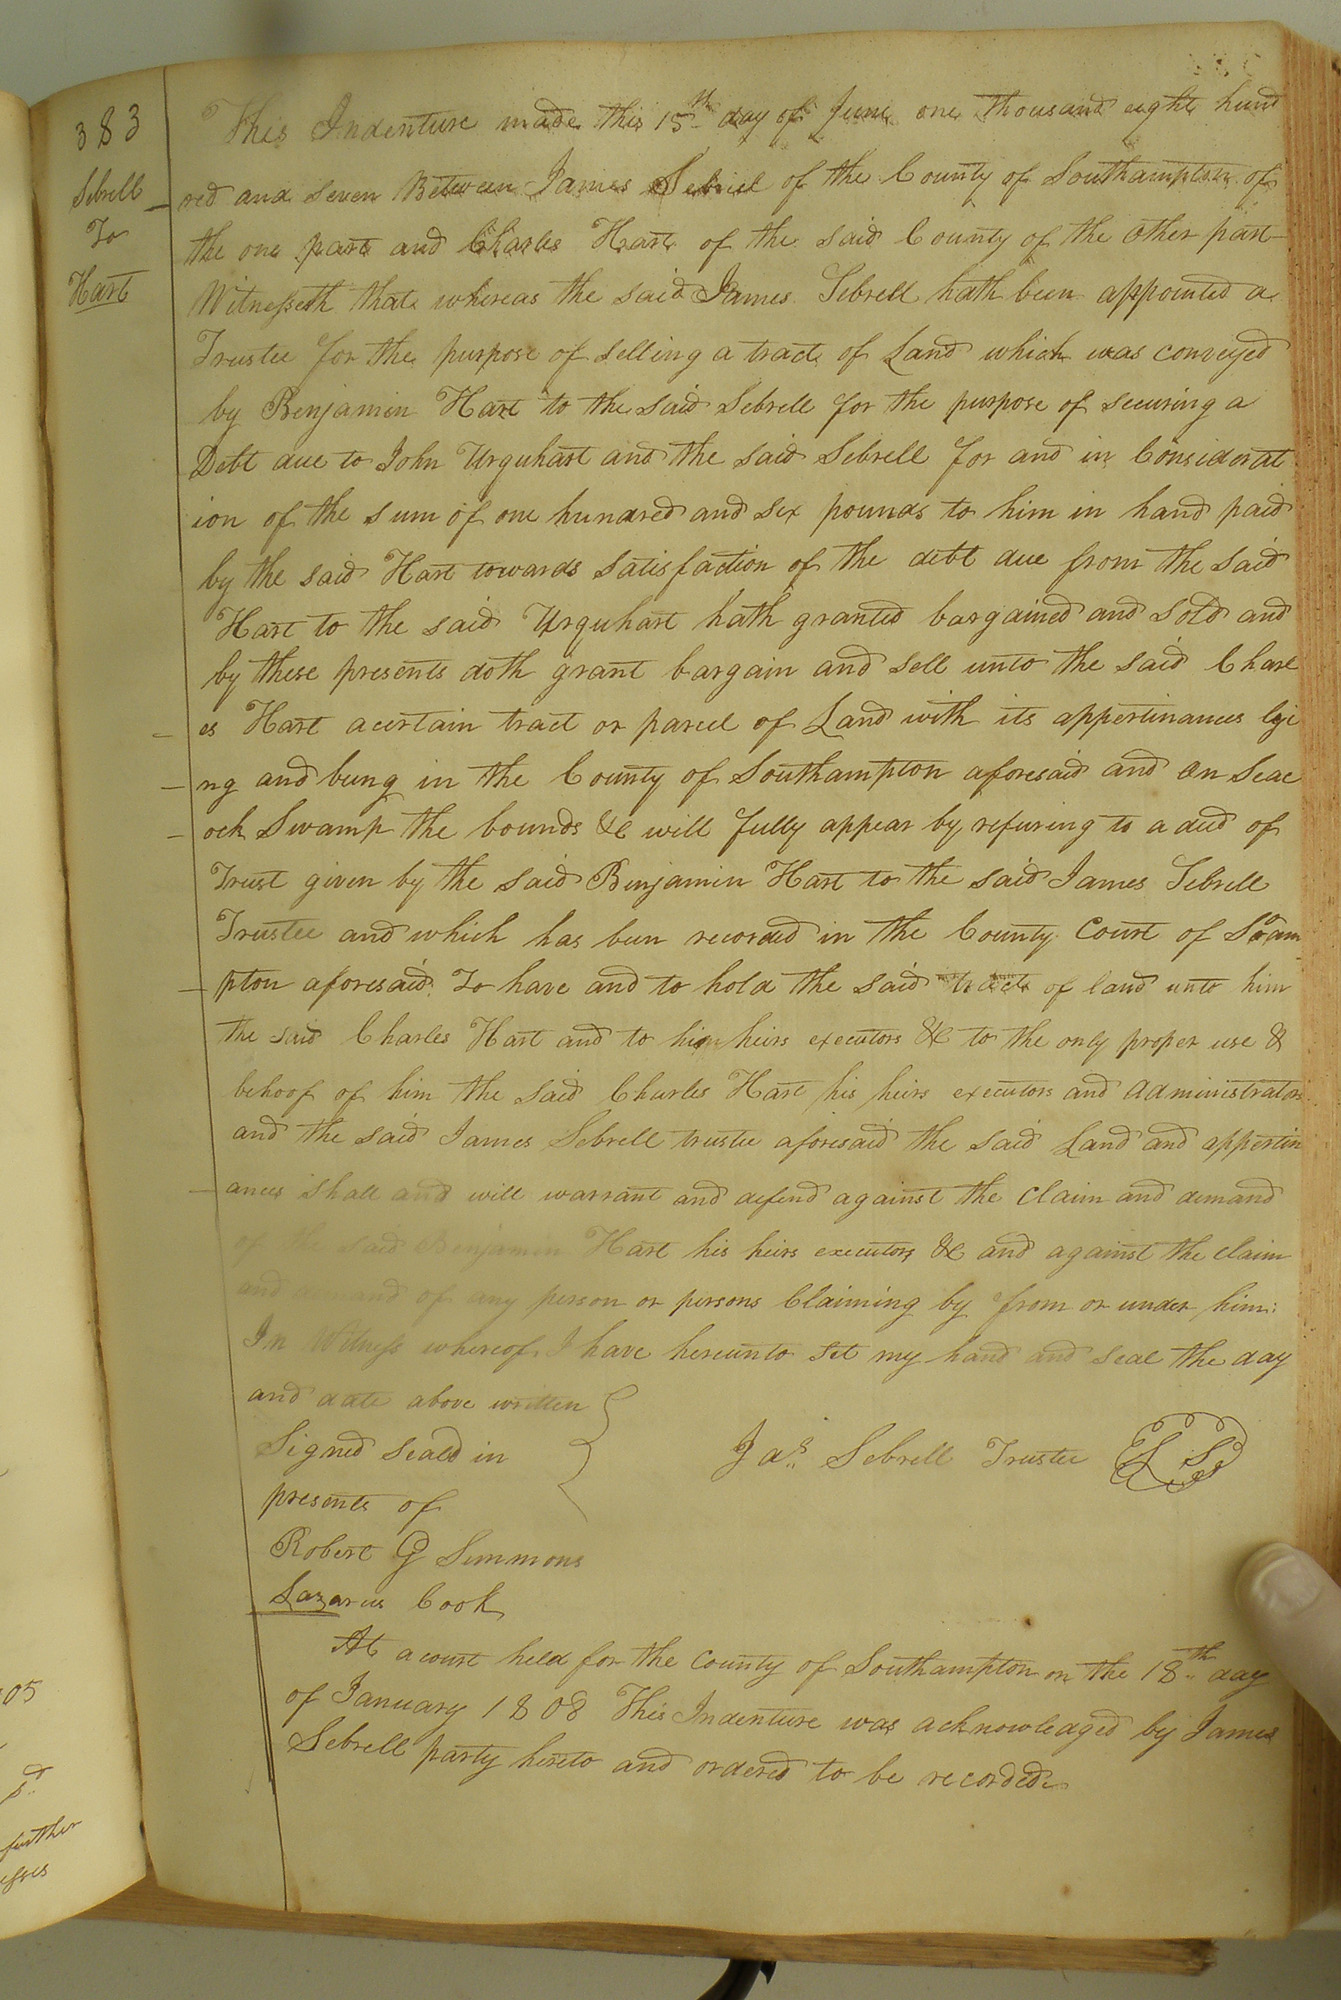 383
Sebrell
To
Hart
This Indenture made this 15th day of June one thousand eight hund
red and seven Between James Sebrell of the County of Southampton of
the one part and Charles Hart of the said County of the other part
Witnesseth that whereas the said James Sebrell hath been appointed a
Trustee for the purpose of selling a tract of Land which was conveyed
by Benjamin Hart to the said Sebrell for the purpose of securing a
Debt due to John Urquhart and the said Sebrell for and in Considerat
ion of the sum of one hundred and six pounds to him in hand paid
by the said Hart towards satisfaction of the debt due from the said
Hart to the said Urquhart hath granted bargained and sold and
by these presents doth grant bargain and sell unto the said Charl
es Hart a certain tract or parcel of Land with its appertinances lyi
ng and being in the County of Southampton aforesaid and on Seac
ock Swamp the bounds &c will fully appear by refering to a deed of
Trust given by the said Benjamin Hart to the said James Sebrell
Trustee and which has been recorded in the County Court of Soam
pton aforesaid To have and to hold the said tract of land unto him
the said Charles Hart and to him heirs executors &c to the only proper use &
behoof of him the said Charles Hart his heirs executors and administrators
and the said James Sebrell trustee aforesaid the said Land and appertin
ances shall and will warrant and defend against the claim and demand
of the said Benjamin Hart his heirs executors &c and against the claim
and demand of any person or persons Claiming by from or under him:
In Witness whereof I have hereunto set my hand and seal the day
and date above written
Signed seald in
presents of
Jas. Sebrell Trustee L S
Robert G Simmons
Lazarus Cook
At a court held for the county of Southampton on the 18th day
of January 1808 This Indenture was acknowledged by James
Sebrell party hereto and ordered to be recorded
05
further
esses